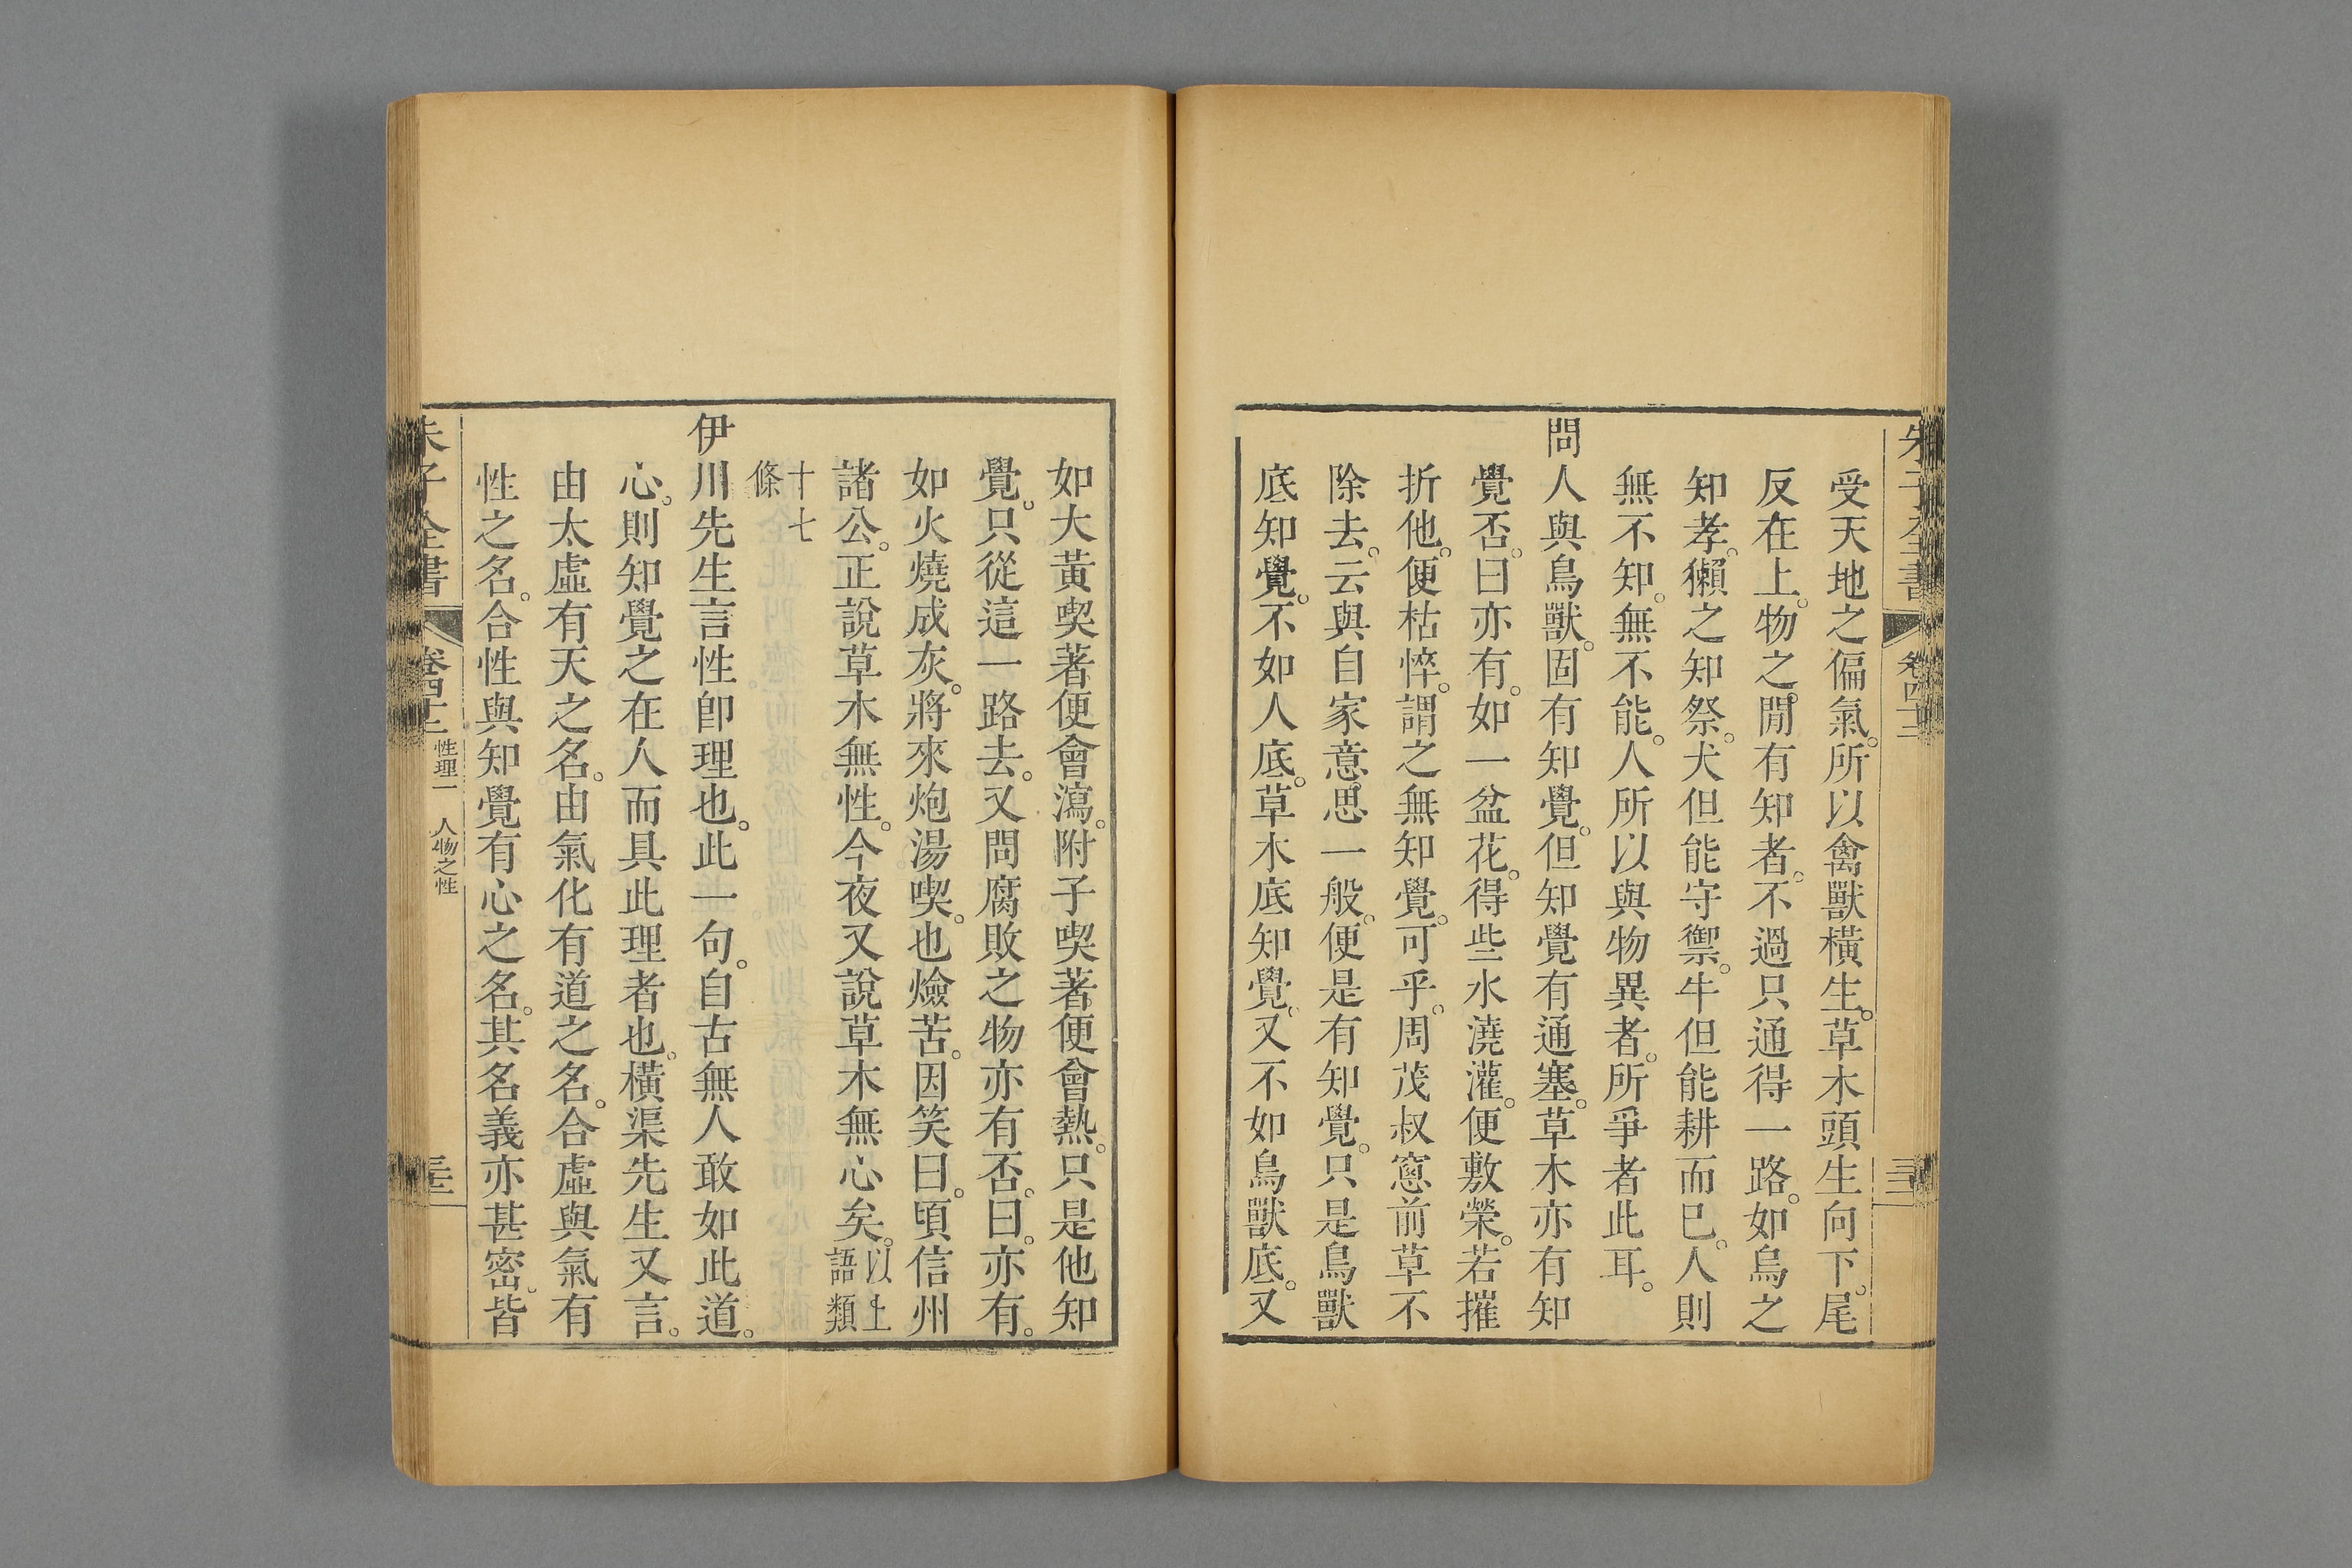 朱子全書 卷四十二
受天地之偏氣。所以禽獸橫生。草木頭生向下。尾
反在上。物之閒有知者。不過只通得一路。如烏之
知孝。獺之知祭。犬但能守禦。牛但能耕而已。人則
無不知。無不能。人所以與物異者。所爭者此耳。
問人與鳥獸。固有知覺。但知覺有通塞。草木亦有知
覺否。曰亦有。如一盆花。得些水澆灌。便敷榮。若摧
折他。便枯悴。謂之無知覺。可乎。周茂叔窻前草不
除去。云與自家意思一般。便是有知覺。只是鳥獸
底知覺。不如人底。草木底知覺。又不如鳥獸底。又
如大黃喫著便會瀉。附子喫著便會熱。只是他知
覺。只從這一路去。又問腐敗之物亦有否。曰。亦有。
如火燒成灰。將來炮湯喫。也燄苦。因笑曰。頃信州
諸公。正說草木無性。今夜又說草木無心矣。以上
語類
十七
條
伊川先生言性卽理也。此一句。自古無人敢如此道。
心。則知覺之在人而具此理者也。橫渠先生又言。
由太虛有天之名。由氣化有道之名。合虛與氣有
性之名。合性與知覺有心之名。其名義亦甚密。皆
朱子全書 卷四十二 性理一 人物之性